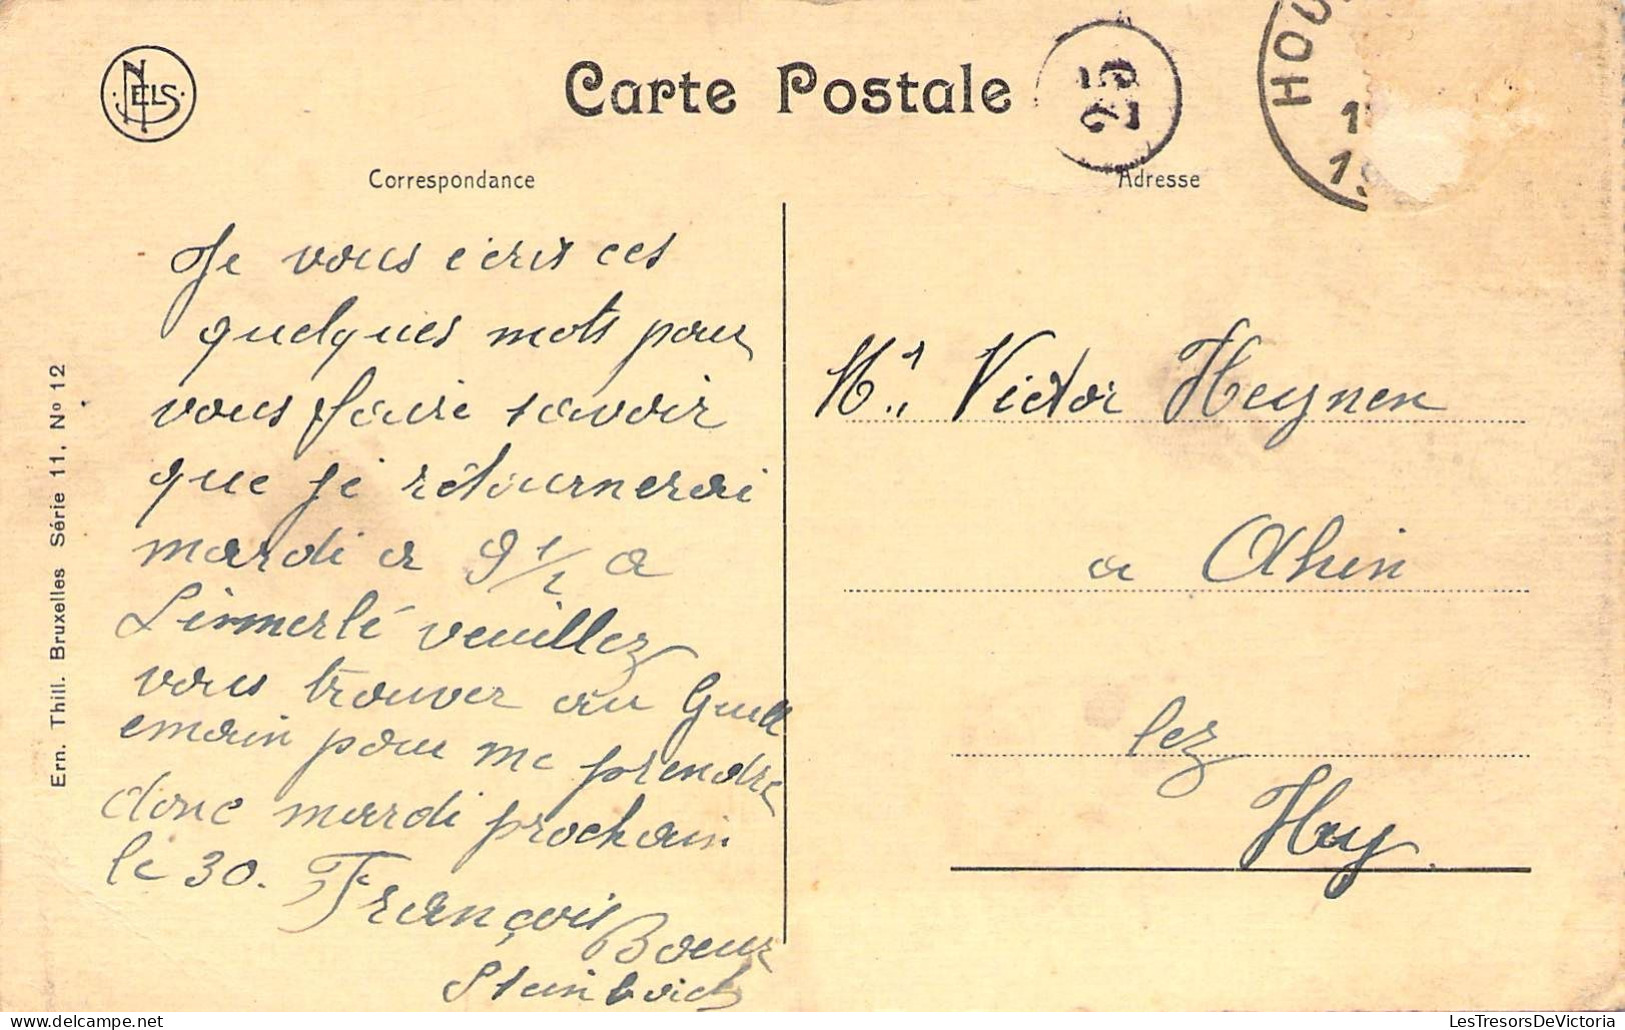 NELS
Carte Postale
25
HOU
1
19
Correspondance
Adresse
Je vous écris ces
quelques mots pour
vous faire savoir
que je rétournerai
mardi a 9 1/2 a
Limerlé veuillez
vous trouver au Guill
emain pour me prendre
donc mardi prochain
le 30. François
Boeur
Steinbach
Mr. Victor Heynen
a Ahin
lez
Huy
Ern. Thill. Bruxelles Série 11, Nº 12
LesTresorsDeVictoria